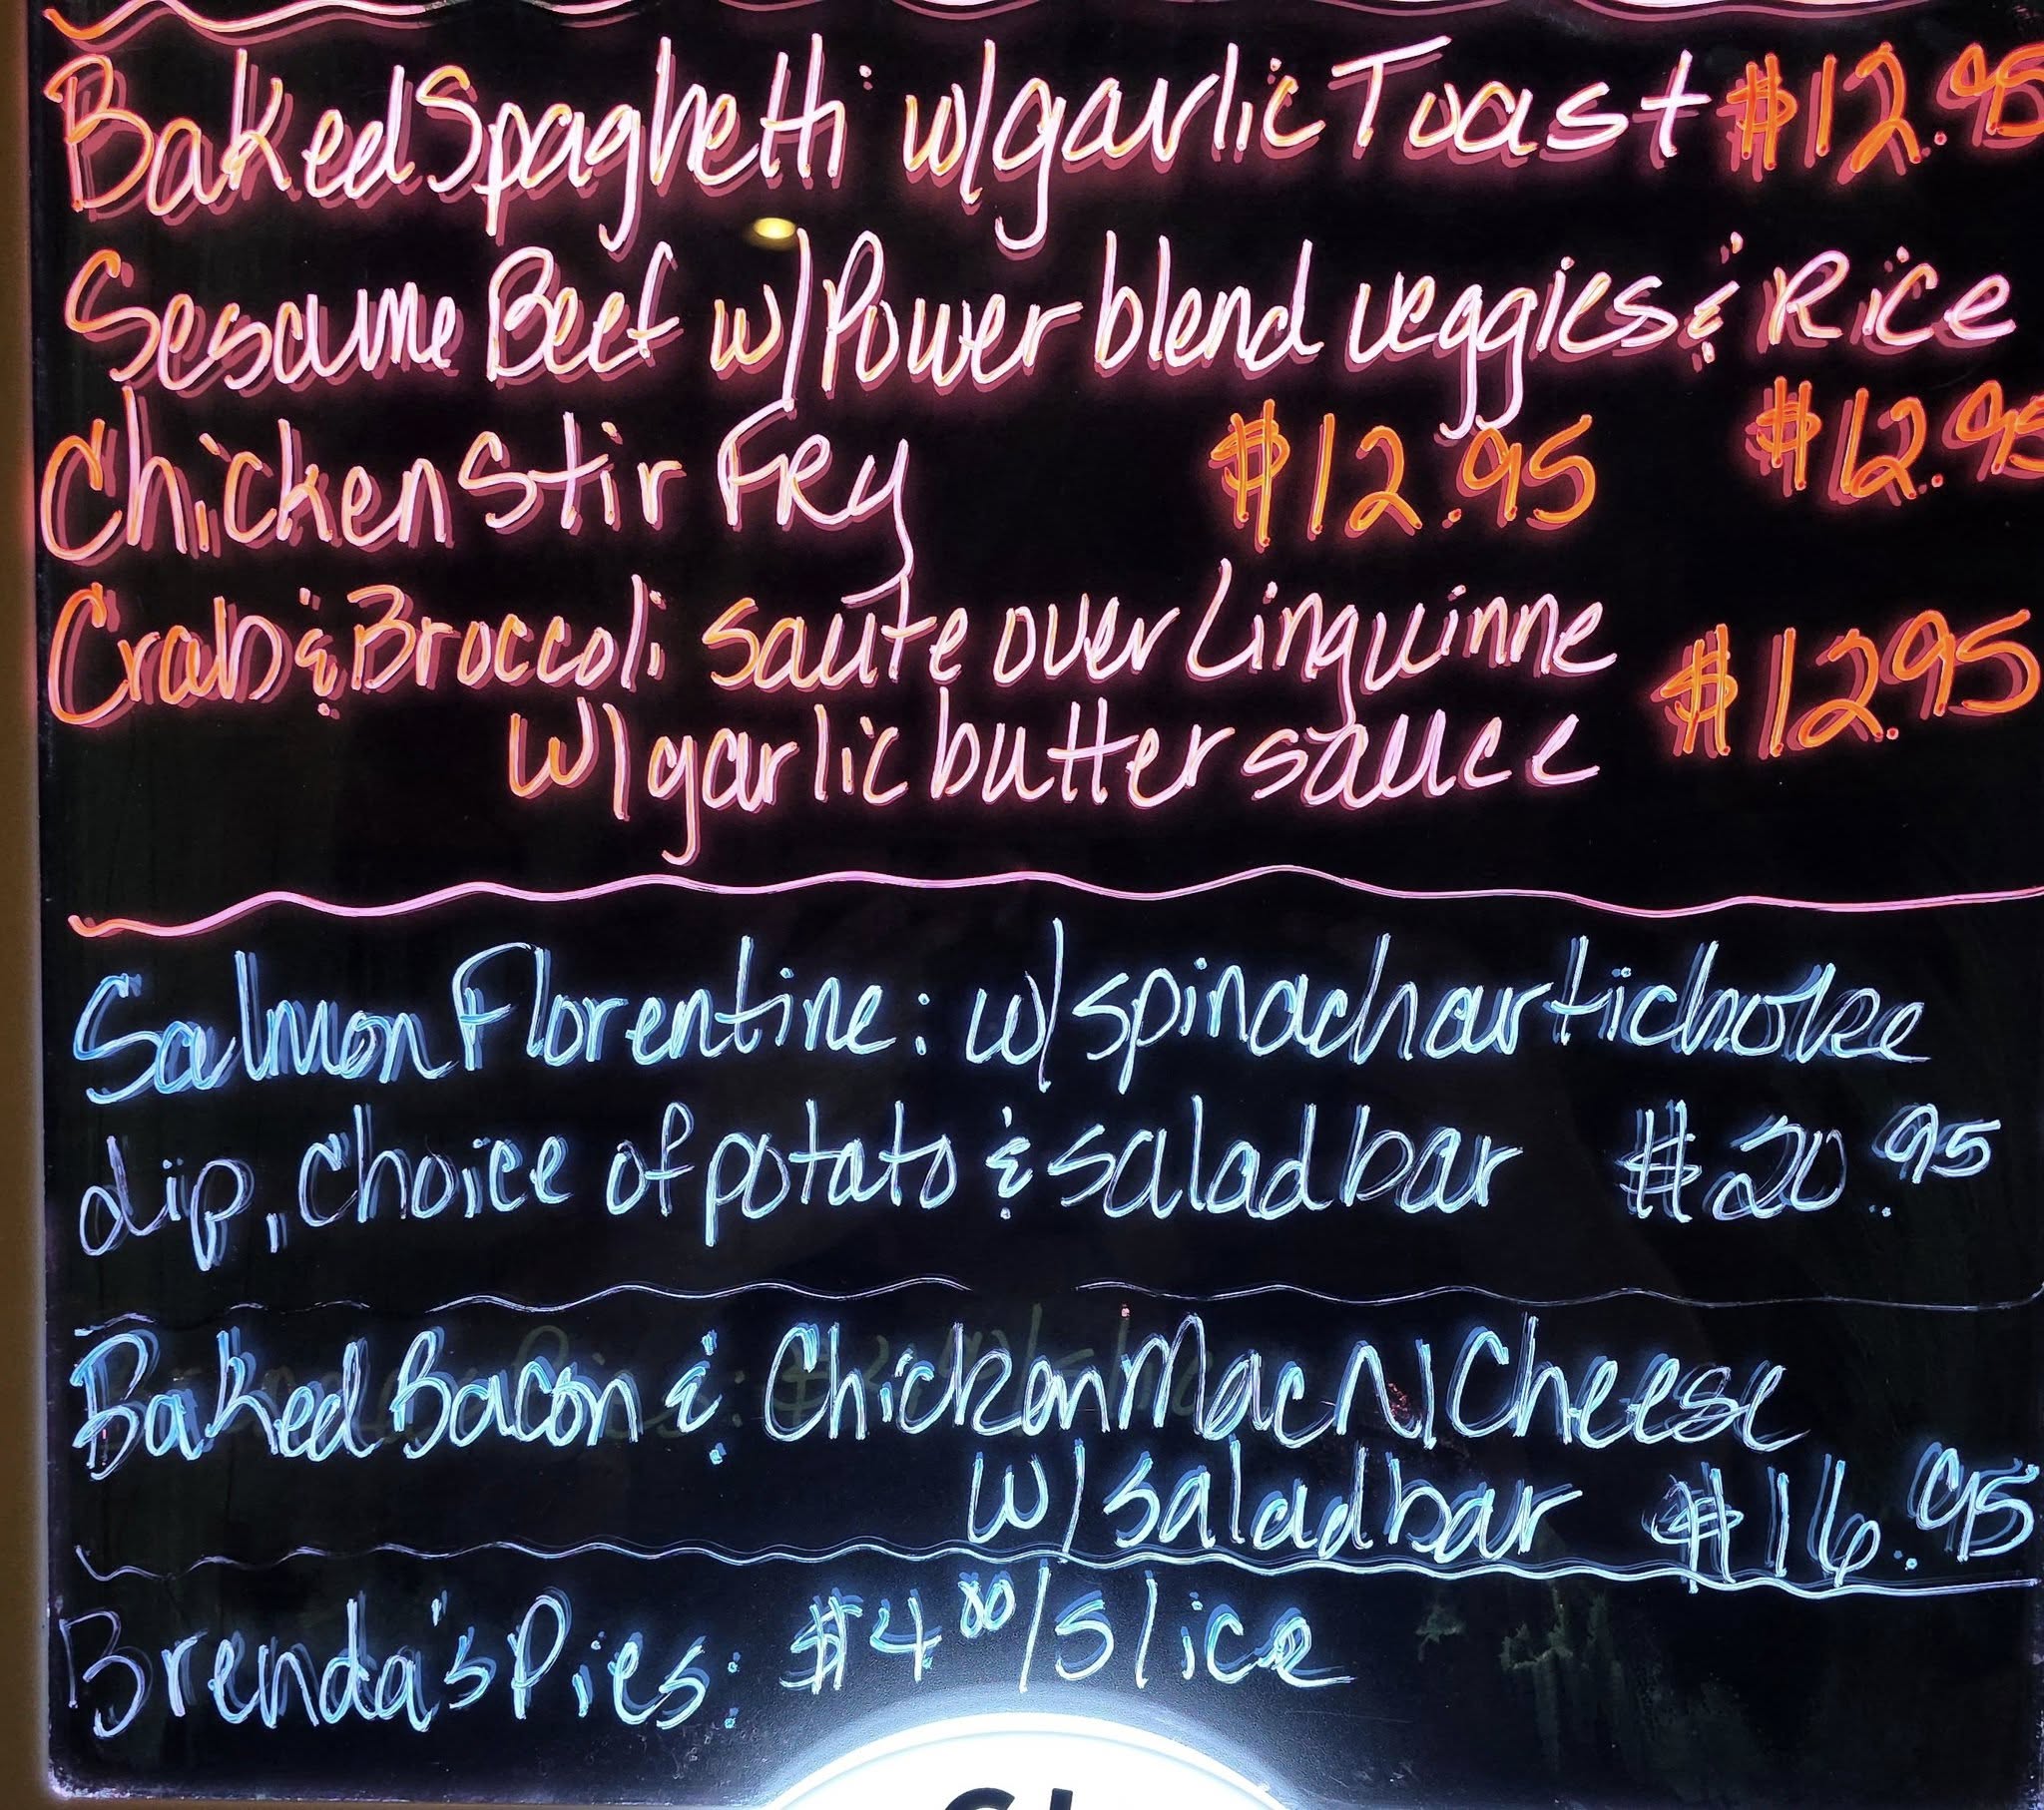 Baked Spaghetti w/garlic Toast $12.95
Sesame Beef w/Power blend veggies & Rice
$12.95
Chicken Stir Fry $12.95
Crab & Broccoli saute over Linguinne
w/garlic butter sauce $12.95
Salmon Florentine: w/spinach artichoke
dip, choice of potato & salad bar $20.95
Baked Bacon & Chicken Mac N Cheese
w/salad bar $16.95
Brenda's Pies: $4.00/slice